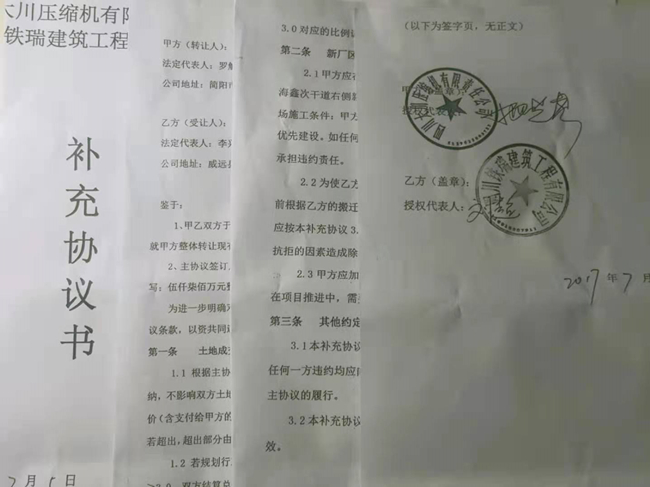 川压缩机有限
铁瑞建筑工程
补充协议书
甲方（转让人）：
法定代表人：罗
公司地址：简阳市
乙方（受让人）：
法定代表人：李
公司地址：威远县
鉴于：
1、甲乙双方于
就甲方整体转让现有
2、主协议签订
写：伍仟柒佰万元整
为进一步明确
议条款，以资共同
第一条 土地成
1.1 根据主协
纳，不影响双方土地
价（含支付给甲方的
若超出，超出部分由
1.2 若规划行
3.0 对应的比例
第二条 新厂区
2.1 甲方应在
海鑫次干道右侧
场施工条件；甲方
优先建设。如任何
承担违约责任。
2.2 为使乙方
前根据乙方的搬迁
应按本补充协议 3.
抗拒的因素造成除
2.3 甲方应加
在项目推进中，需
第三条 其他约定
3.1 本补充协议
任何一方违约均应
主协议的履行。
3.2 本补充协议
效。
（以下为签字页，无正文）
授权代表
川压缩机有限责任公司
乙方（盖章）：
授权代表人：
川铁瑞建筑工程有限公司
2017 年 7 月